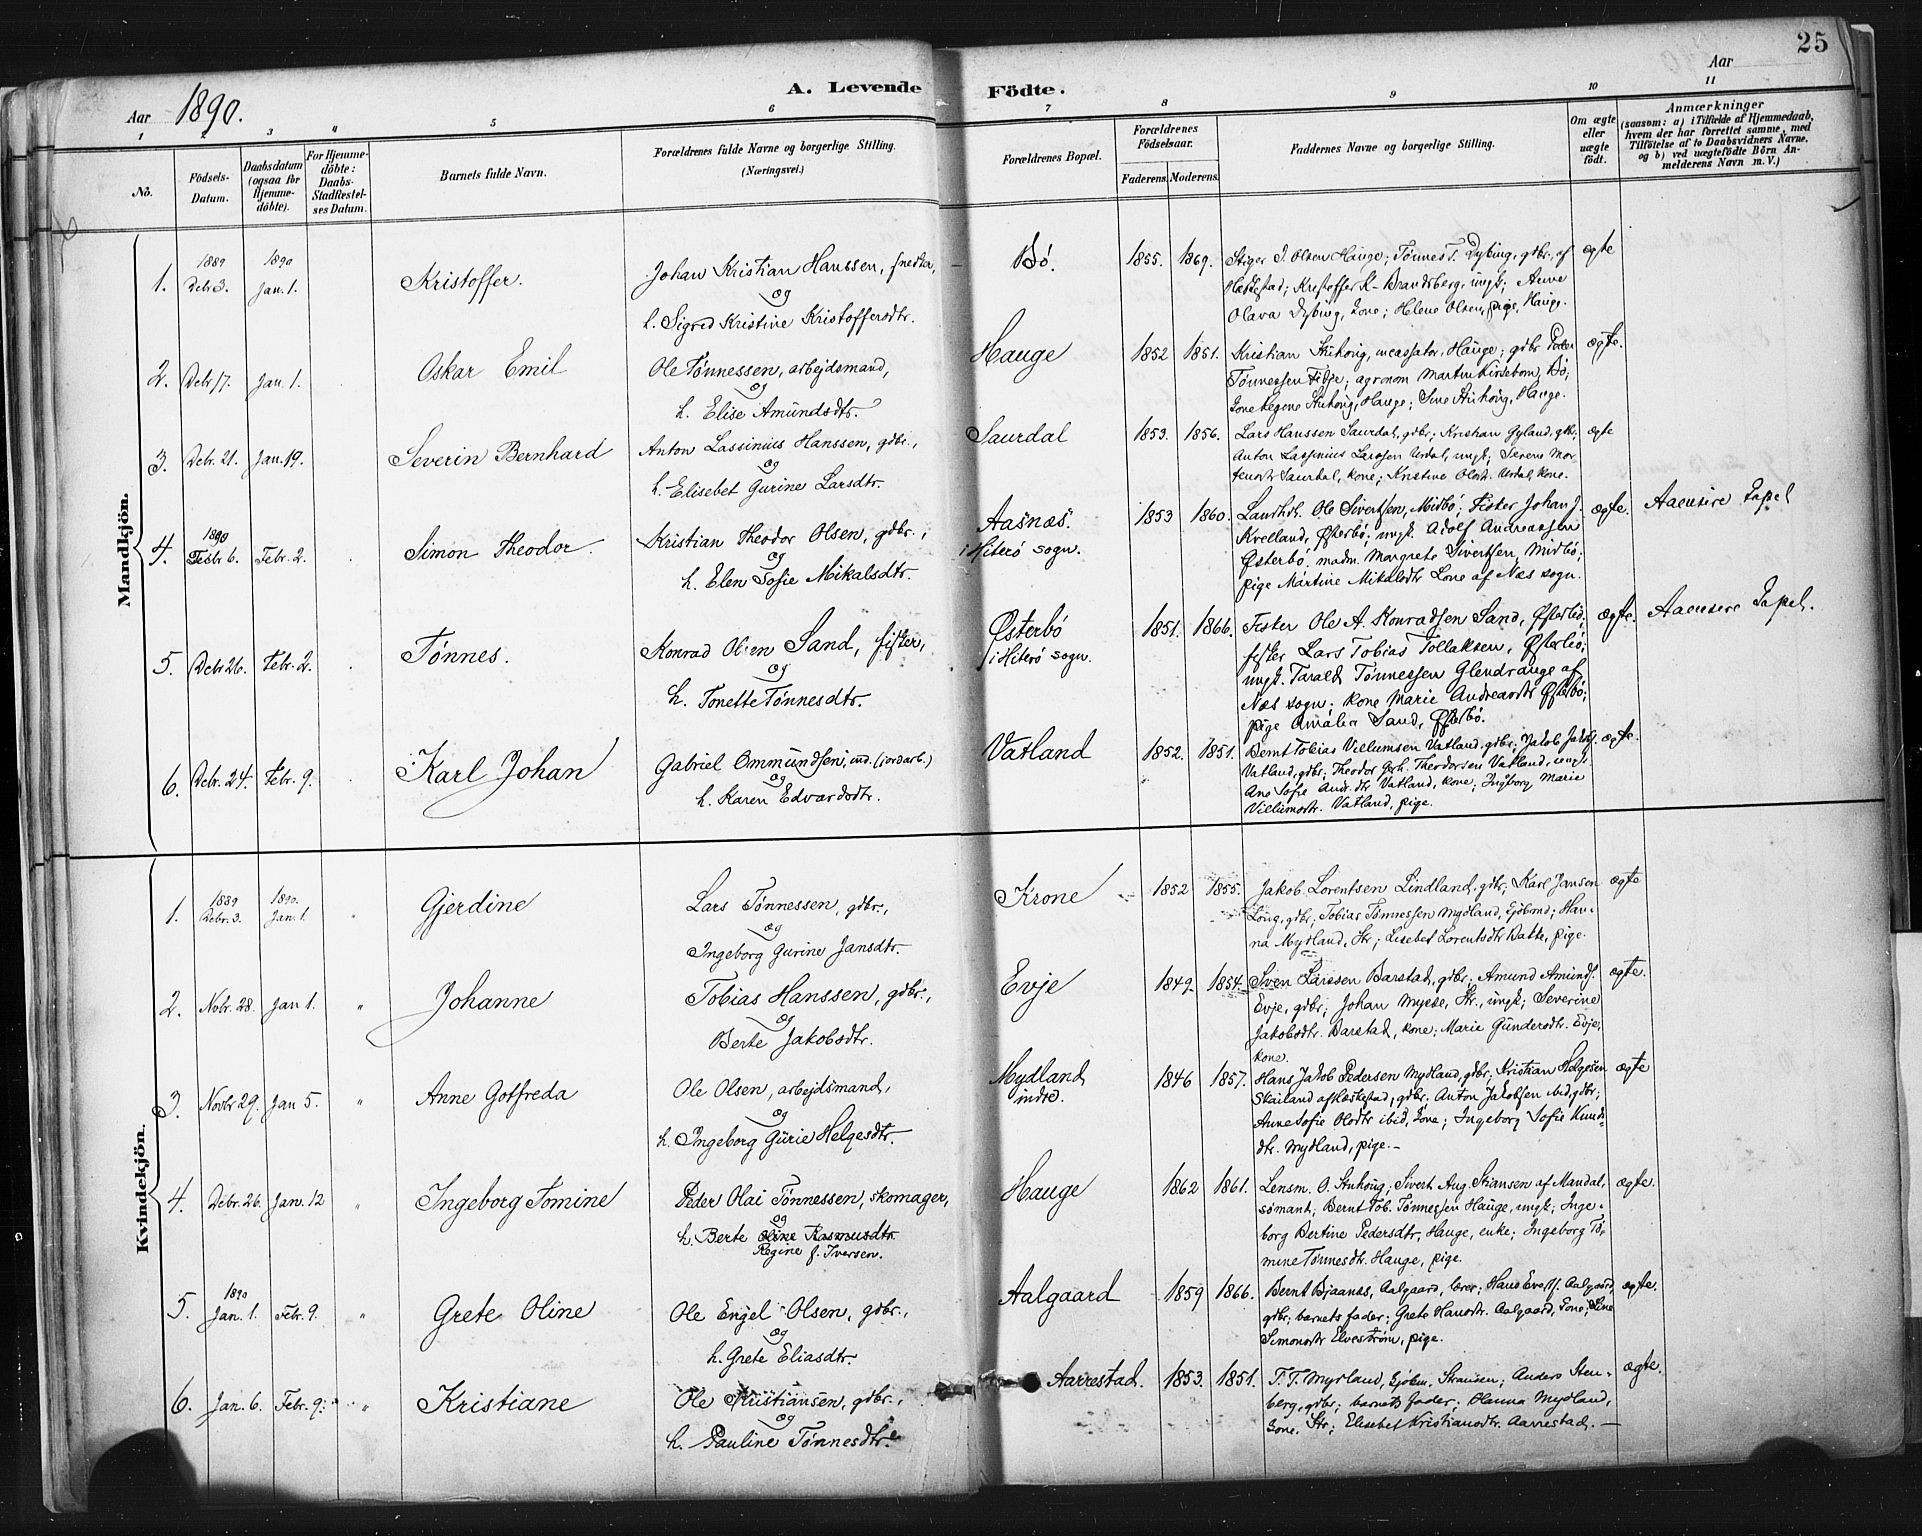 25
Aar 1890.
A. Levende Födte.
Aar
1 2 3 4 5 6 7 8 9 10 11
No.
Födsels-Datum.
Daabsdatum (ogsaa for Hjemme-döbte).
For Hjemme-döbte: Daabs-Stadfæstel-ses Datum.
Barnets fulde Navn.
Forældrenes fulde Navne og borgerlige Stilling.
(Næringsvei.)
Forældrenes Bopæl.
Forældrenes Födselsaar.
Faderens. Moderens.
Faddernes Navne og borgerlige Stilling.
Om ægte eller uægte födt.
Anmærkninger
(saasom: a) i Tilfælde af Hjemmedaab,
hvem der har forrettet samme, med
Tilföielse af to Daabsvidners Navne,
og b) ved uægtefödte Börn An-
melderens Navn m. V.)
Mandkjön.
1. 1889 Debr 3. 1890 Jan. 1. Kristoffer. Johan Kristian Hanssen, snedker,
og
h. Sigred Kristine Kristoffersdtr.
Bö. 1855. 1869. Steger J. Olsen Hauge; Tønnes T. Dybing, gdbr. af
Heskestad; Kristoffer K. Brandsberg, ungk; Anne
Olava Dybing, Kone; Helene Olsen, pige, Hauge.
ægte
2. Debr 17. Jan. 1. Oskar Emil Ole Tønnessen, arbejdsmand,
og
h. Elise Amundsdtr.
Hauge 1852 1851. Kristian Stuhoug, incassator, Hauge; gdbr Peder
Tønnessen Fidje; agronom Martin Kirsebom, Bö;
Kone Regine Stuhoug, Hauge; Sine Stuhoug, Hauge.
ægte.
3. Debr. 21. Jan. 19. Severin Bernhard Anton Lassinius Hanssen, gdbr.,
og
h. Elisebet Gurine Larsdtr.
Saurdal 1853. 1856. Lars Hanssen Saurdal, gdbr; Kristian Gyland, gdbr;
Anton Lassinius Larssen Urdal, ungk; Serene Mor-
tensdtr Saurdal, kone; Kristine Olsdtr. Urdal, kone.
ægte
4. 1890 Febr 6. Febr. 2. Simon Theodor. Kristian Theodor Olsen, gdbr.,
og
h. Elen Sofie Mikalsdtr.
Aasnæs. i Hiterö sogn. 1853 1860. Landhdl. Ole Sivertsen, Midbö; Fisker Johan J.
Kvelland, Østerbö; ungk. Adolf Andreassen
Østerbö. madm. Margrete Sivertsen, Midbö;
pige Martine Mikalsdtr Lone af Næs sogn.
ægte. Aaensire Kapel
5. Debr 26. Febr. 2. Tønnes. Konrad Olsen Sand, fisker,
og
h. Tonette Tønnesdtr.
Østerbö i Hiterö sogn. 1851. 1866. Fisker Ole A. Konradsen Sand, Østerbö,
fisker Lars Tobias Tollaksen, Østerbö;
ungk. Tarald Tønnessen Glendrange af
Næs sogn; kone Marie Andreasdtr Østerbö;
pige Amalia Sand, Østerbö.
ægte. Aaensire Kapel.
6. Debr. 24. Febr. 9. Karl Johan Gabriel Ommundsen, ind. (jordarb.)
og
h. Karen Edvardsdtr.
Vatland 1852. 1851. Bernt Tobias Villumsen Vatland, gdbr; Jakob Jakobs.
Vatland, gdbr; Theodor Gerh. Theodorsen Vatland, ungk.
Ane Sofie Andr.dtr Vatland, kone; Ingeborg Marie
Villumsdtr. Vatland, pige.
ægte.
Kvindekjön.
1. 1889 Debr. 3. 1890. Jan. 1. Gjerdine Lars Tønnessen, gdbr.,
og
Ingeborg Gurine Jansdtr.
Krone 1852 1855. Jakob Lorentsen Lindland, gdbr; Karl Jansen
Long, gdbr; Tobias Tønnessen Mydland, Ejdbmd; Han-
na Mydland, Str; Lisebet Lorentsdtr Batte, pige.
ægte
2. Novbr. 28. Jan 1. Johanne Tobias Hanssen, gdbr.,
og
Berte Jakobsdtr.
Evje 1849 1854. Sven Larssen Barstad, gdbr. Amund Amunds.
Evje, gdbr; Johan Mysse, Str., ungk; Severine
Jakobsdtr. Barstad, kone; Marie Gundersdtr. Evje,
kone.
ægte.
3. Novbr 29. Jan 5. Anne Gotfreda Ole Olsen, arbejdsmand,
og
h. Ingeborg Gurie Helgesdtr.
Mydland indre. 1846 1857. Hans Jakob Pedersen Mydland, gdbr; Kristian Helgesen
Skailand af Heskestad, gdbr; Anton Jakobsen ibid, gdbr;
Anne Sofie Olsdtr ibid, Kone; Ingeborg Sofie Knuds-
dtr. Mydland, pige.-
ægte
4. Debr. 26. Jan. 12 Ingeborg Tomine Peder Olai Tønnessen, skomager,
og
h. Berte Oline Rasmusdtr.
Regine f. Iversen.
Hauge 1862 1861. Lensm. O. Stuhoug; Sivert Aug. Stiansen af Mandal,
sömant; Bernt Tob. Tønnessen Hauge, ungk; Inge-
borg Bertine Pedersdtr, Hauge, enke; Ingeborg To-
mine Tønnesdtr. Hauge, pige.
ægte.
5. 1890 Jan. 1. Febr. 9. Grete Oline Ole Engel Olsen, gdbr.,
og
h. Grete Eliasdtr.
Aalgaard 1859 1866. Bernt Bjaanes, Aalgaard, lærer; Hans Evers. Aalgaard,
gdbr; barnets fader; Grete Hansdtr. Aalgaard, Kone; Sine
Simonsdtr Elvestrøm, pige.
ægte.
6. Jan. 6. Febr. 9. Kristiane Ole Kristiansen, gdbr.,
og
h. Pauline Tønnesdtr.
Aarrestad. 1853. 1851. T. T. Mydland, Ejdbm. Stransen; Anders Sten-
berg, gdbr; barnets fader; Hanna Mydland,
Kone. Str; Elisebet Kristiansdtr. Aarrestad.
ægte.